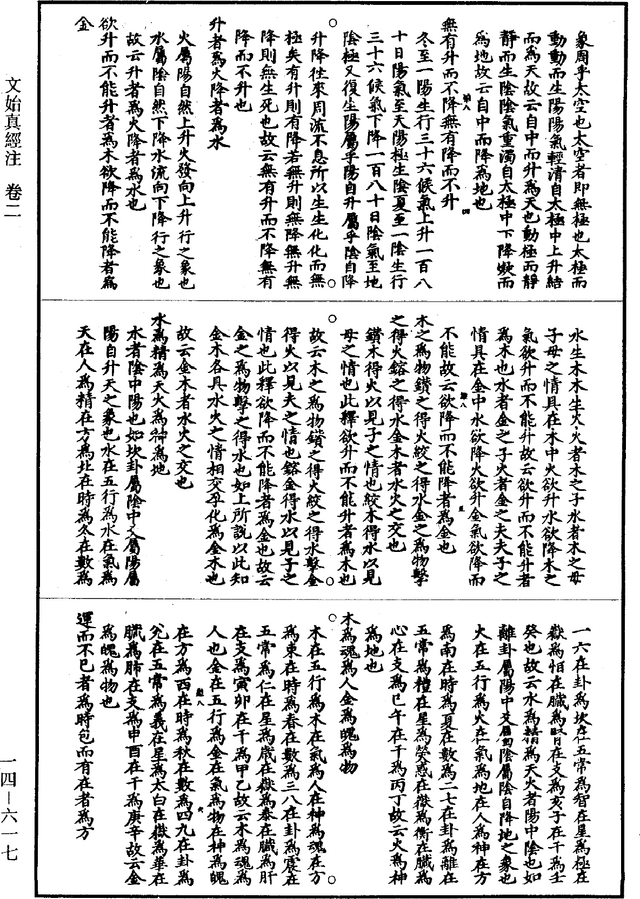 象周乎太空也太空者即無極也太極而
動動而生陽陽氣輕清自太極中上升結
而為天故云自中而升為天也動極而靜
靜而生陰陰氣重濁自太極中下降凝而
為地故云自中而降為地也
無有升而不降無有降而不升
冬至一陽生行三十六候氣上升一百八
十日陽氣至天陽極生陰夏至一陰生行
三十六候氣下降一百八十日陰氣至地
陰極又復生陽屬乎陽自升屬乎陰自降
升降往來周流不息所以生生化化而無
極矣有升則有降若無升則無降無升無
降則無生死也故云無有升而不降無有
降而不升也
升者為火降者為水
火屬陽自然上升火發向上升行之象也
水屬陰自然下降水流向下降行之象也
故云升者為火降者為水也
欲升而不能升者為木欲降而不能降者為
金
水生木木生火火者木之子水者木之母
子母之情具在木中火欲升水欲降木之
氣欲升而不能升故云欲升而不能升者
為木也水者金之子火者金之夫夫子之
情具在金中水欲降火欲升金氣欲降而
不能故云欲降而不能降者為金也
木之為物鑽之得火絞之得水金之為物擊
之得火鎔之得水金木者水火之交也
鑽木得火以見子之情也絞木得水以見
母之情也此釋欲升而不能升者為木也
故云木之為物鑽之得火絞之得水擊金
得火以見夫之情也鎔金得水以見子之
情也此釋欲降而不能降者為金也故云
金之為物擊之得水也如上所說以此知
金木各具水火之情相交孕化為金木也
故云金木者水火之交也
水為精為天火為神為地
水者陰中陽也如坎卦屬陰中爻屬陽屬
陽自升天之象也水在五行為水在氣為
天在人為精在方為北在時為冬在數為
一六在卦為坎在五常為智在星為極在
嶽為恒在臟為腎在支為亥子在干為壬
癸也故云水為精為天火者陽中陰也如
離卦屬陽中爻屬陰屬陰自降地之象也
火在五行為火在氣為地在人為神在方
為南在時為夏在數為二七在卦為離在
五常為禮在星為熒惑在嶽為衡在臟為
心在支為巳午在干為丙丁故云火為神
為地也
木為魂為人金為魄為物
木在五行為木在氣為人在神為魂在方
為東在時為春在數為三八在卦為震在
五常為仁在星為歲在嶽為泰在臟為肝
在支為寅卯在干為甲乙故云木為魂為
人也金在五行為金在氣為物在神為魄
在方為西在時為秋在數為四九在卦為
兌在五常為義在星為太白在嶽為華在
臟為肺在支為申酉在干為庚辛故云金
為魄為物也
運而不已者為時包而有在者為方
文始真經注 卷二
一四—六一七